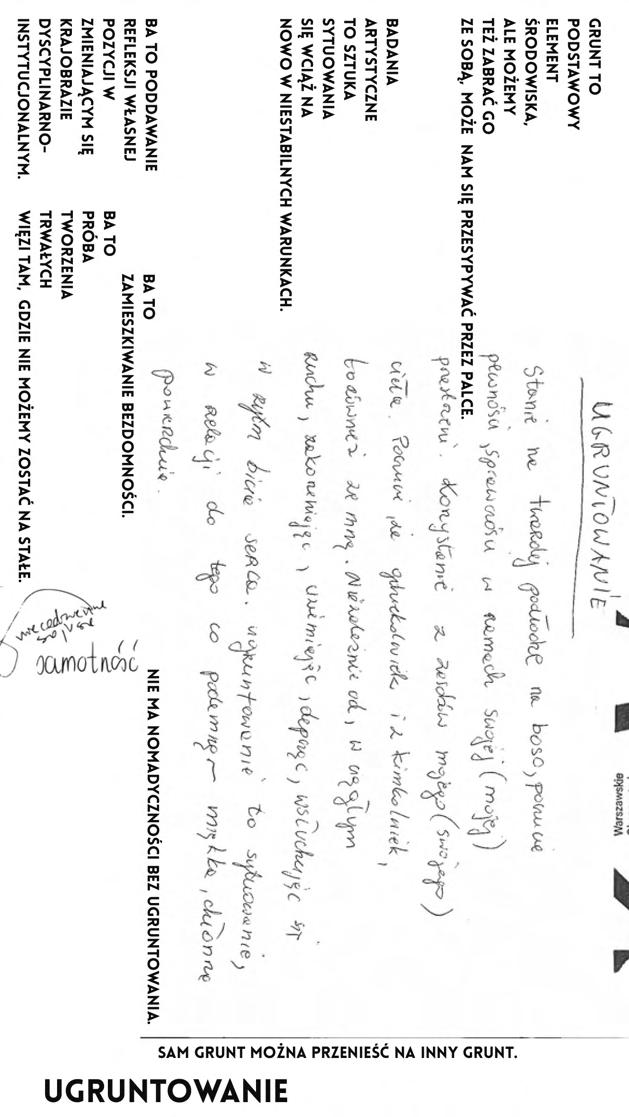 GRUNT TO
PODSTAWOWY
ELEMENT
ŚRODOWISKA,
ALE MOŻEMY
TEŻ ZABRAĆ GO
ZE SOBĄ, MOŻE NAM SIĘ PRZESYPYWAĆ PRZEZ PALCE.
BADANIA
ARTYSTYCZNE
TO SZTUKA
SYTUOWANIA
SIĘ WCIĄŻ NA
NOWO W NIESTABILNYCH WARUNKACH.
BA TO PODDAWANIE
REFLEKSJI WŁASNEJ
POZYCJI W
ZMIENIAJĄCYM SIĘ
KRAJOBRAZIE
DYSCYPLINARNO-
INSTYTUCJONALNYM.
BA TO
ZAMIESZKIWANIE BEZDOMNOŚCI.
BA TO
PRÓBA
TWORZENIA
TRWAŁYCH
WIĘZI TAM, GDZIE NIE MOŻEMY ZOSTAĆ NA STAŁE.
UGRUNTOWANIE
Stanie na twardej podłodze na boso, poczucie
pewności, sprawności w ramach swojej (mojej)
przestrzeni. Korzystanie z zasobów mojego (swojego)
ciała. Poczucie, że gdziekolwiek i z kimkolwiek,
to również ze mną. Niezależnie od, w ciągłym
ruchu, zakorzeniając, uziemiając, depcząc, wsłuchując się
w rytm bicia serca. Ugruntowanie to sytuowanie,
w relacji do tego co pode mną – miękka, chłonna
powierzchnia.
samotność
NIE MA NOMADYCZNOŚCI BEZ UGRUNTOWANIA.
Warszawskie
SAM GRUNT MOŻNA PRZENIEŚĆ NA INNY GRUNT.
UGRUNTOWANIE